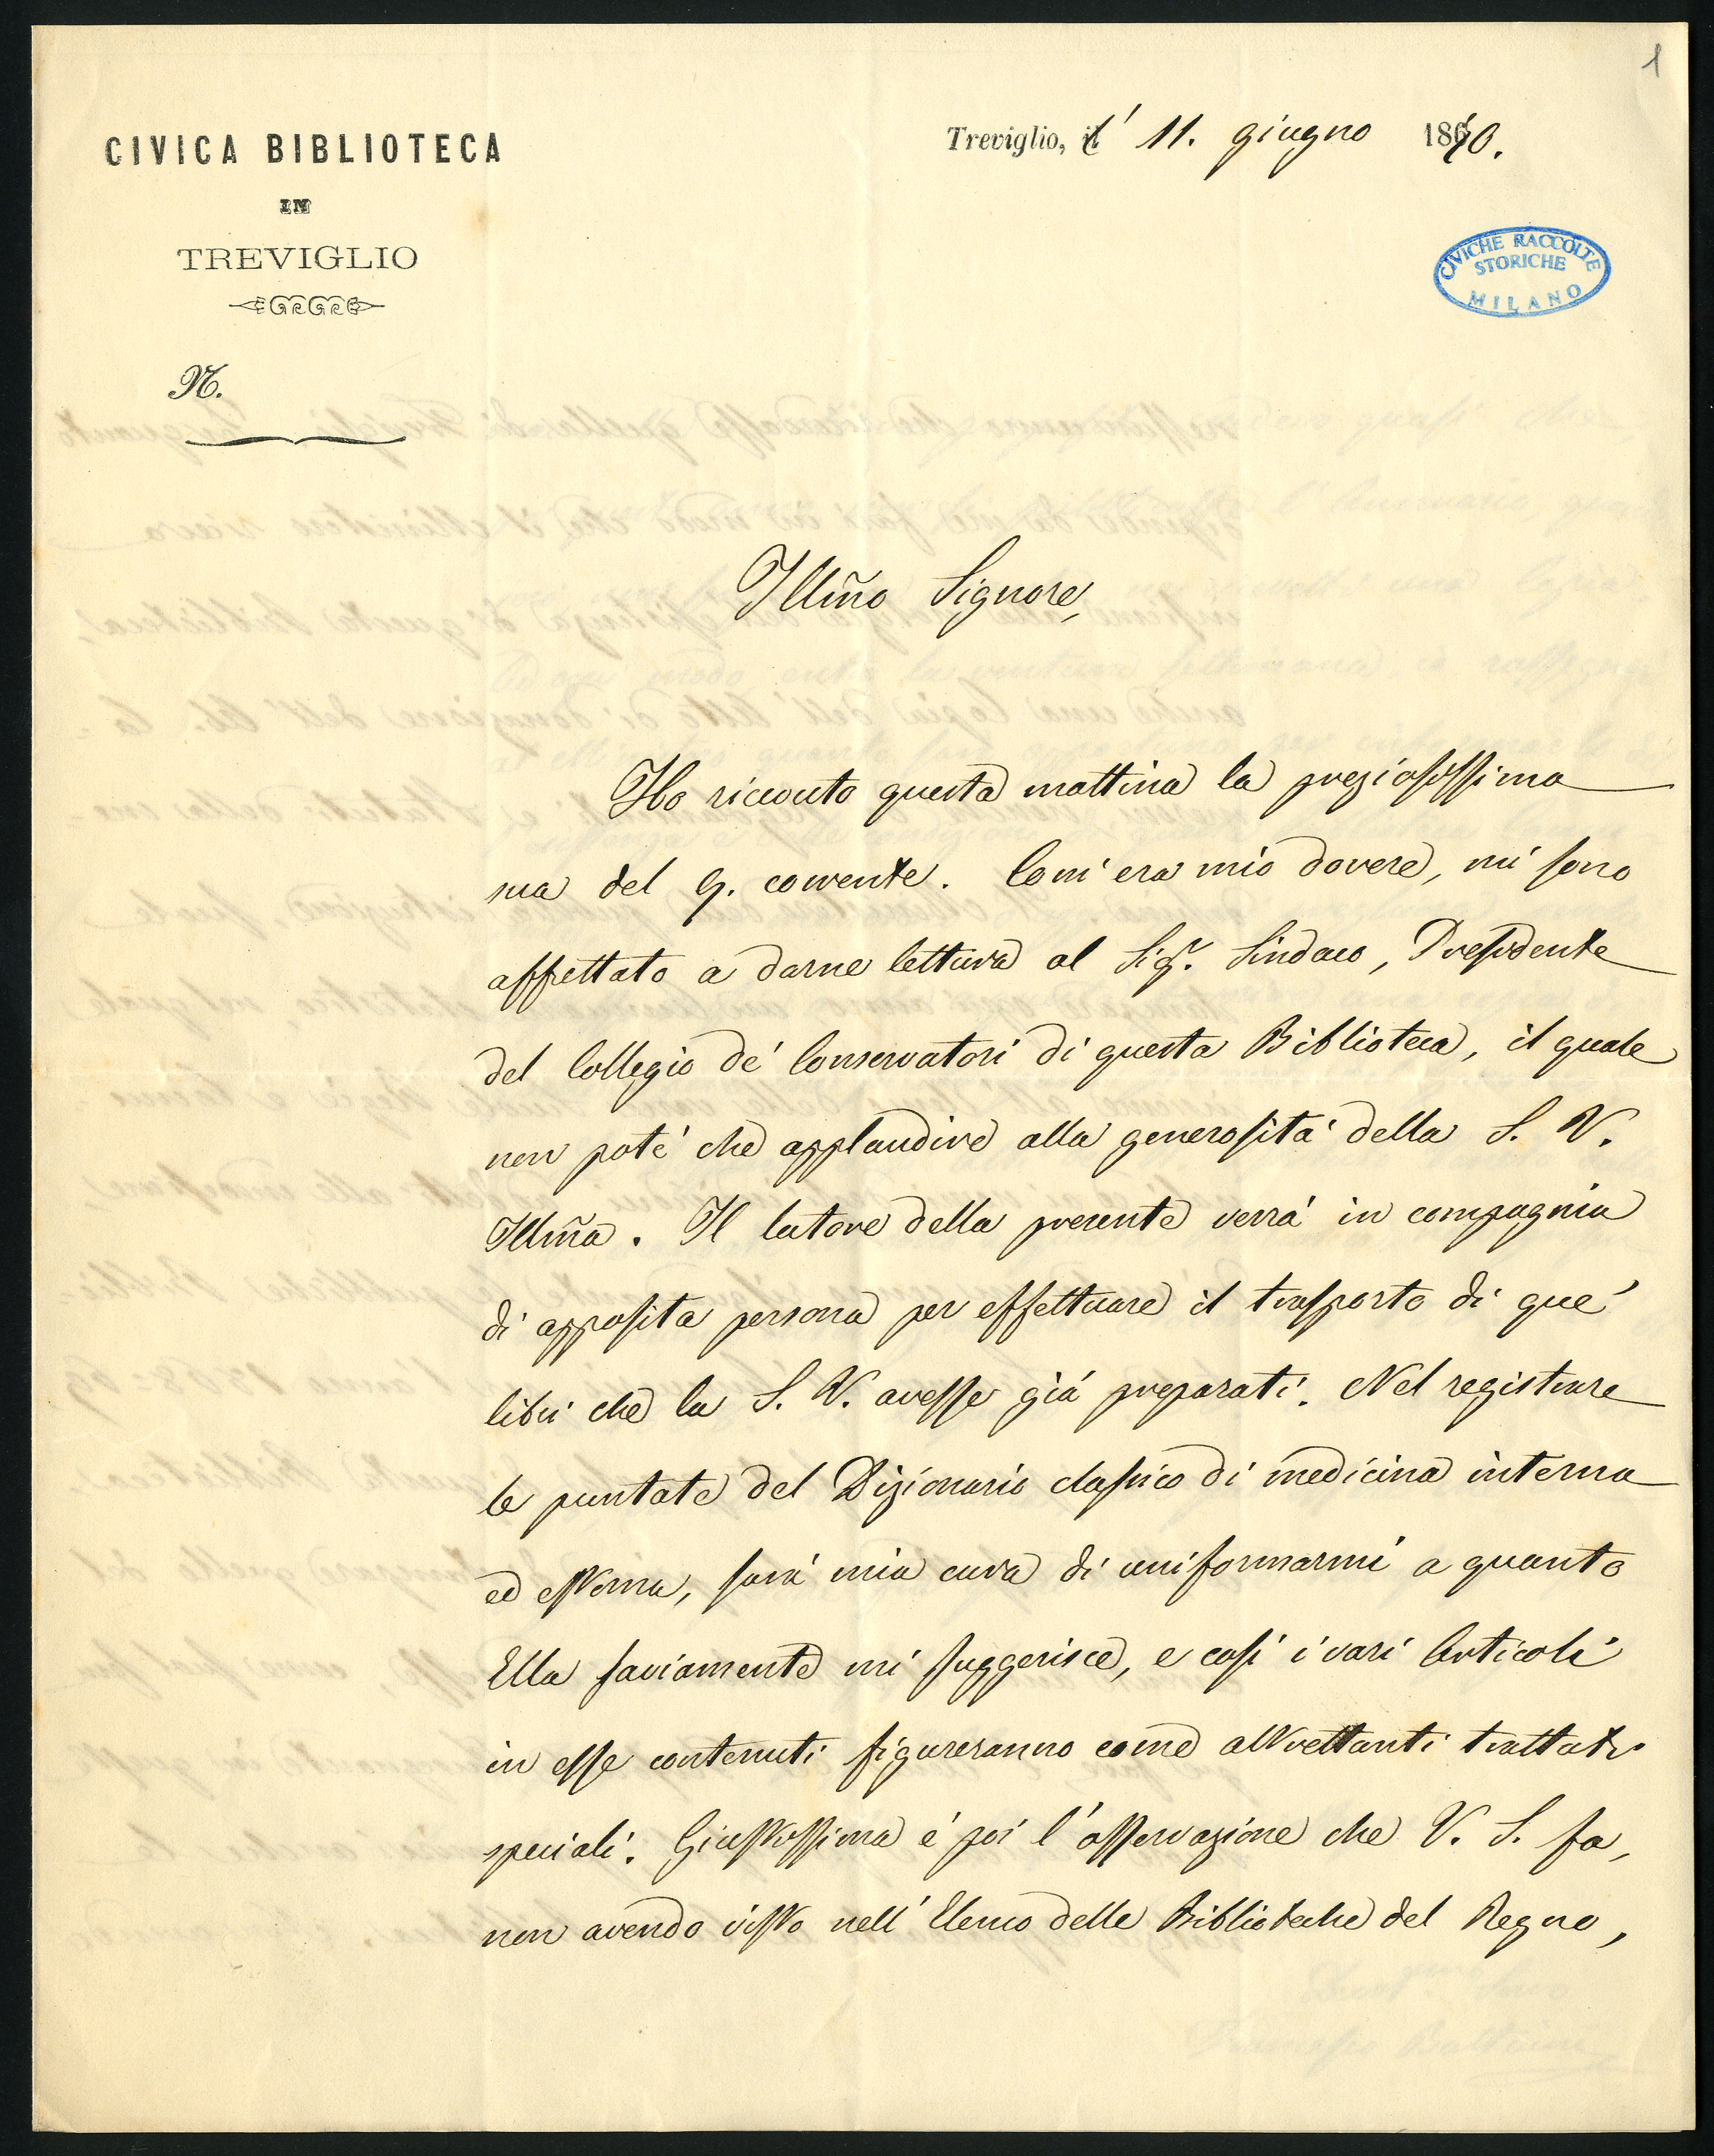 1
CIVICA BIBLIOTECA
IN
TREVIGLIO
N.
Treviglio, l' 11. giugno 1870.
CIVICHE RACCOLTE
STORICHE
MILANO
Illm̃o Signore,
Ho ricevuto questa mattina la preziosissima
sua del 9. corrente. Com'era mio dovere, mi sono
affrettato a darne lettura al Sigr. Sindaco, Presidente
del Collegio de' Conservatori di questa Biblioteca, il quale
non potè che applaudire alla generosità della S. V.
Illm̃a. Il latore della presente verrà in compagnia
di apposita persona per effettuare il trasporto di que'
libri che la S. V. avesse già preparati. Nel registrare
le puntate del Dizionario classico di medicina interna
ed esterna, sarà mia cura di uniformarmi a quanto
Ella saviamente mi suggerisce, e così i vari Articoli
in esse contenuti figureranno come altrettanti trattati
speciali. Giustissima è poi l'osservazione che V. S. fa,
non avendo visto nell'Elenco delle Biblioteche del Regno,